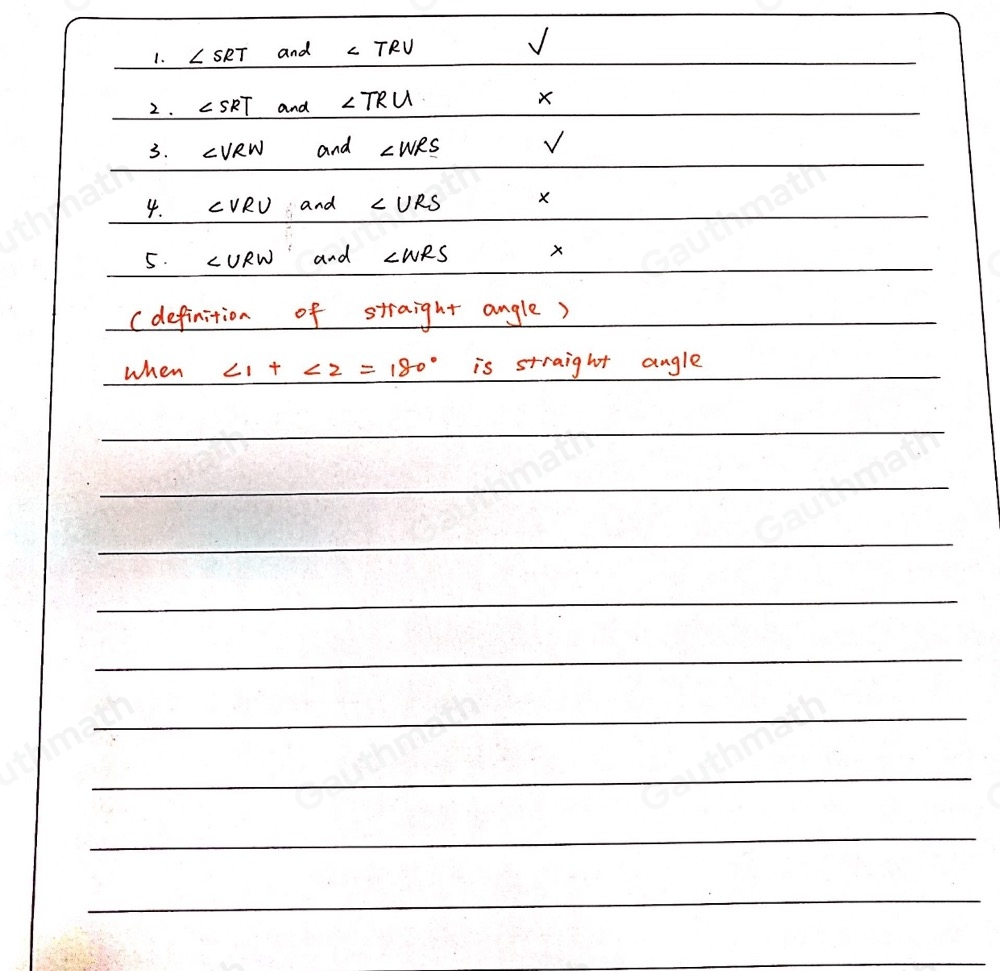 1. ∠SRT and ∠TRV ✓
2. ∠SRT and ∠TRU ×
3. ∠VRW and ∠WRS ✓
4. ∠VRU and ∠URS ×
5. ∠URW and ∠WRS ×
(definition of straight angle)
when ∠1 + ∠2 = 180° is straight angle
Gauthmath